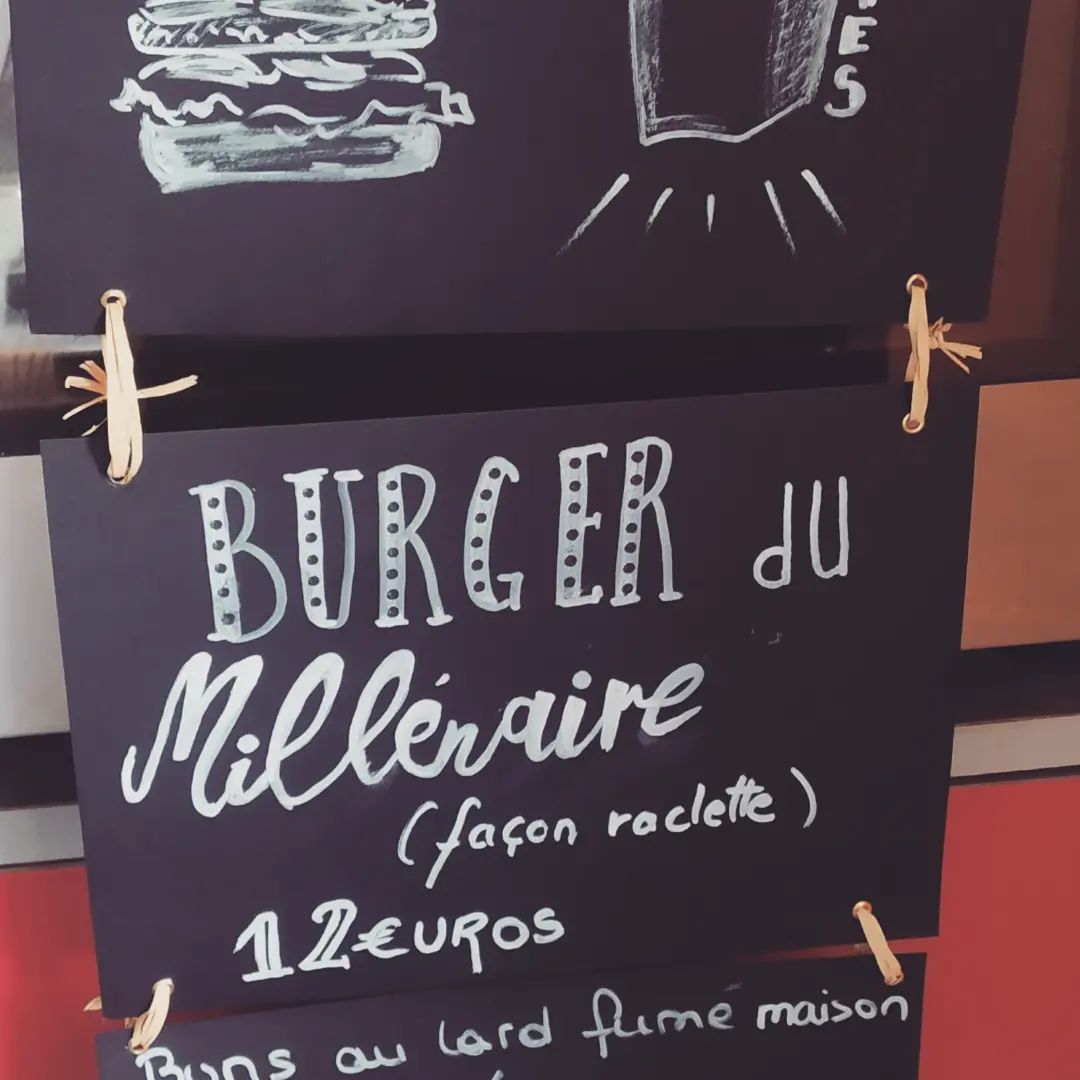 ES
BURGER dU
Millénaire
(façon raclette)
12€UROS
Buns au lard fumé maison